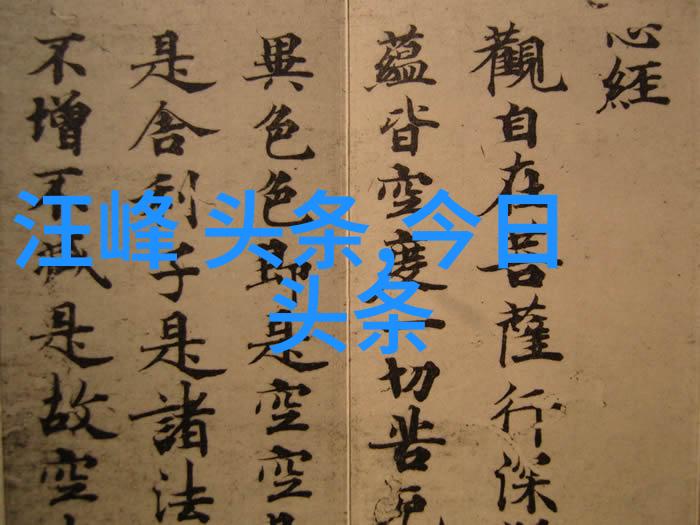 心經
觀自在菩薩行深
蘊皆空度一切苦厄
異色色即是空空
是舍利子是諸法
不增不減是故空
汪峰 头条,今日
头条